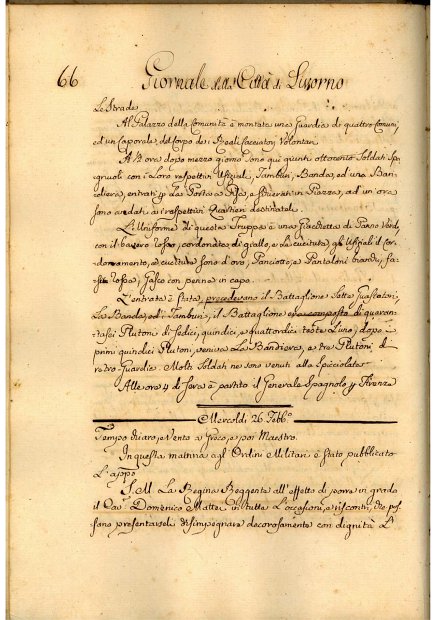 66 Giornale della Città di Livorno
Le Strade
Al Palazzo della Comunità è montata una Guardia di quattro Comuni,
ed un Caporale, del Corpo dei Reali Cacciatori Volontari
A ½ ora dopo mezzo giorno sono qui giunti ottocento Soldati Spa
gnuoli con i loro respettivi Ufiziali, Tamburi, Banda, ed una Ban
diera, entrati p. la Porta a Pisa, e Squadrati in Piazza, ad un ora
sono andati ai respettivi Quartieri destinatili
L'Uniforme di questa Truppa è una Giacchetta di Panno Verd,
con il bavero rosso, cordonato di giallo, e la cucitura agli Ufiziali il cor
donamento, e cucitura sono d'oro, Panciotto, e Pantaloni bianchi, fa
rossa, Casco con penna in capo
L'entrata è stata, precedevano il Battaglione Sette Guastatori,
La Banda, ed i Tamburi, il Battaglione era composto di quaran
tasei Plutoni di sedici, quindici, e quattordici teste l'uno; dopo i
primi quindici Plutoni, veniva La Bandiera, e tre Plutoni di
retro Guardia. Molti Soldati ne sono venuti alla Spicciolata
Alle ore 4 di sera è partito il Generale Spagnolo p. Firenze
Mercoldì 26 Febb.º
Tempo chiaro, e Vento a Greco, e poi Maestro.
In questa mattina agl'Ordini Militari è stato pubblicato
L'app.º
S. M. La Regina Reggente all'effetto di porre in grado
il Cav. Domenico Mattei in tutte L'occasioni, e riscontri, che pos
sano presentarsele disimpegnare decorosamente con dignità L'